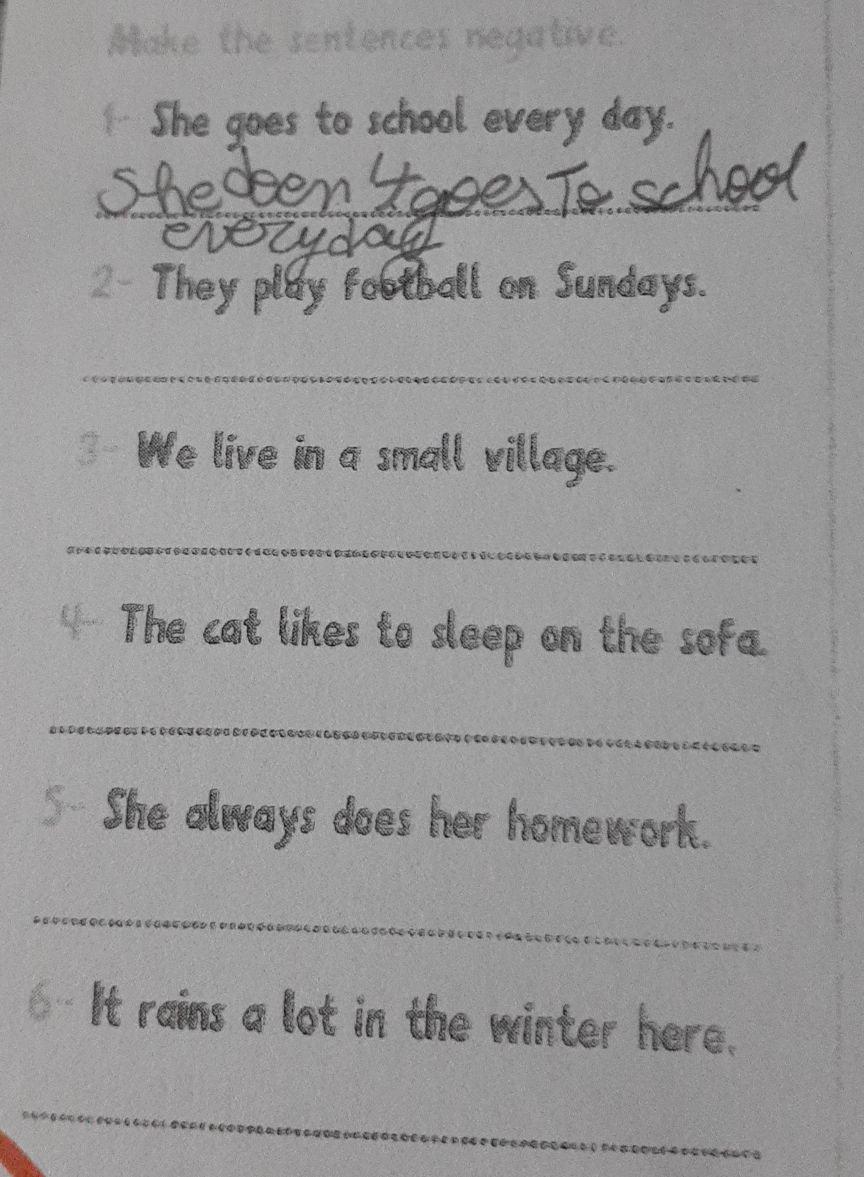 Make the sentences negative.
1- She goes to school every day.
She doen't goes To school
everyday
2- They play football on Sundays.
3- We live in a small village.
4- The cat likes to sleep on the sofa.
5- She always does her homework.
6- It rains a lot in the winter here.